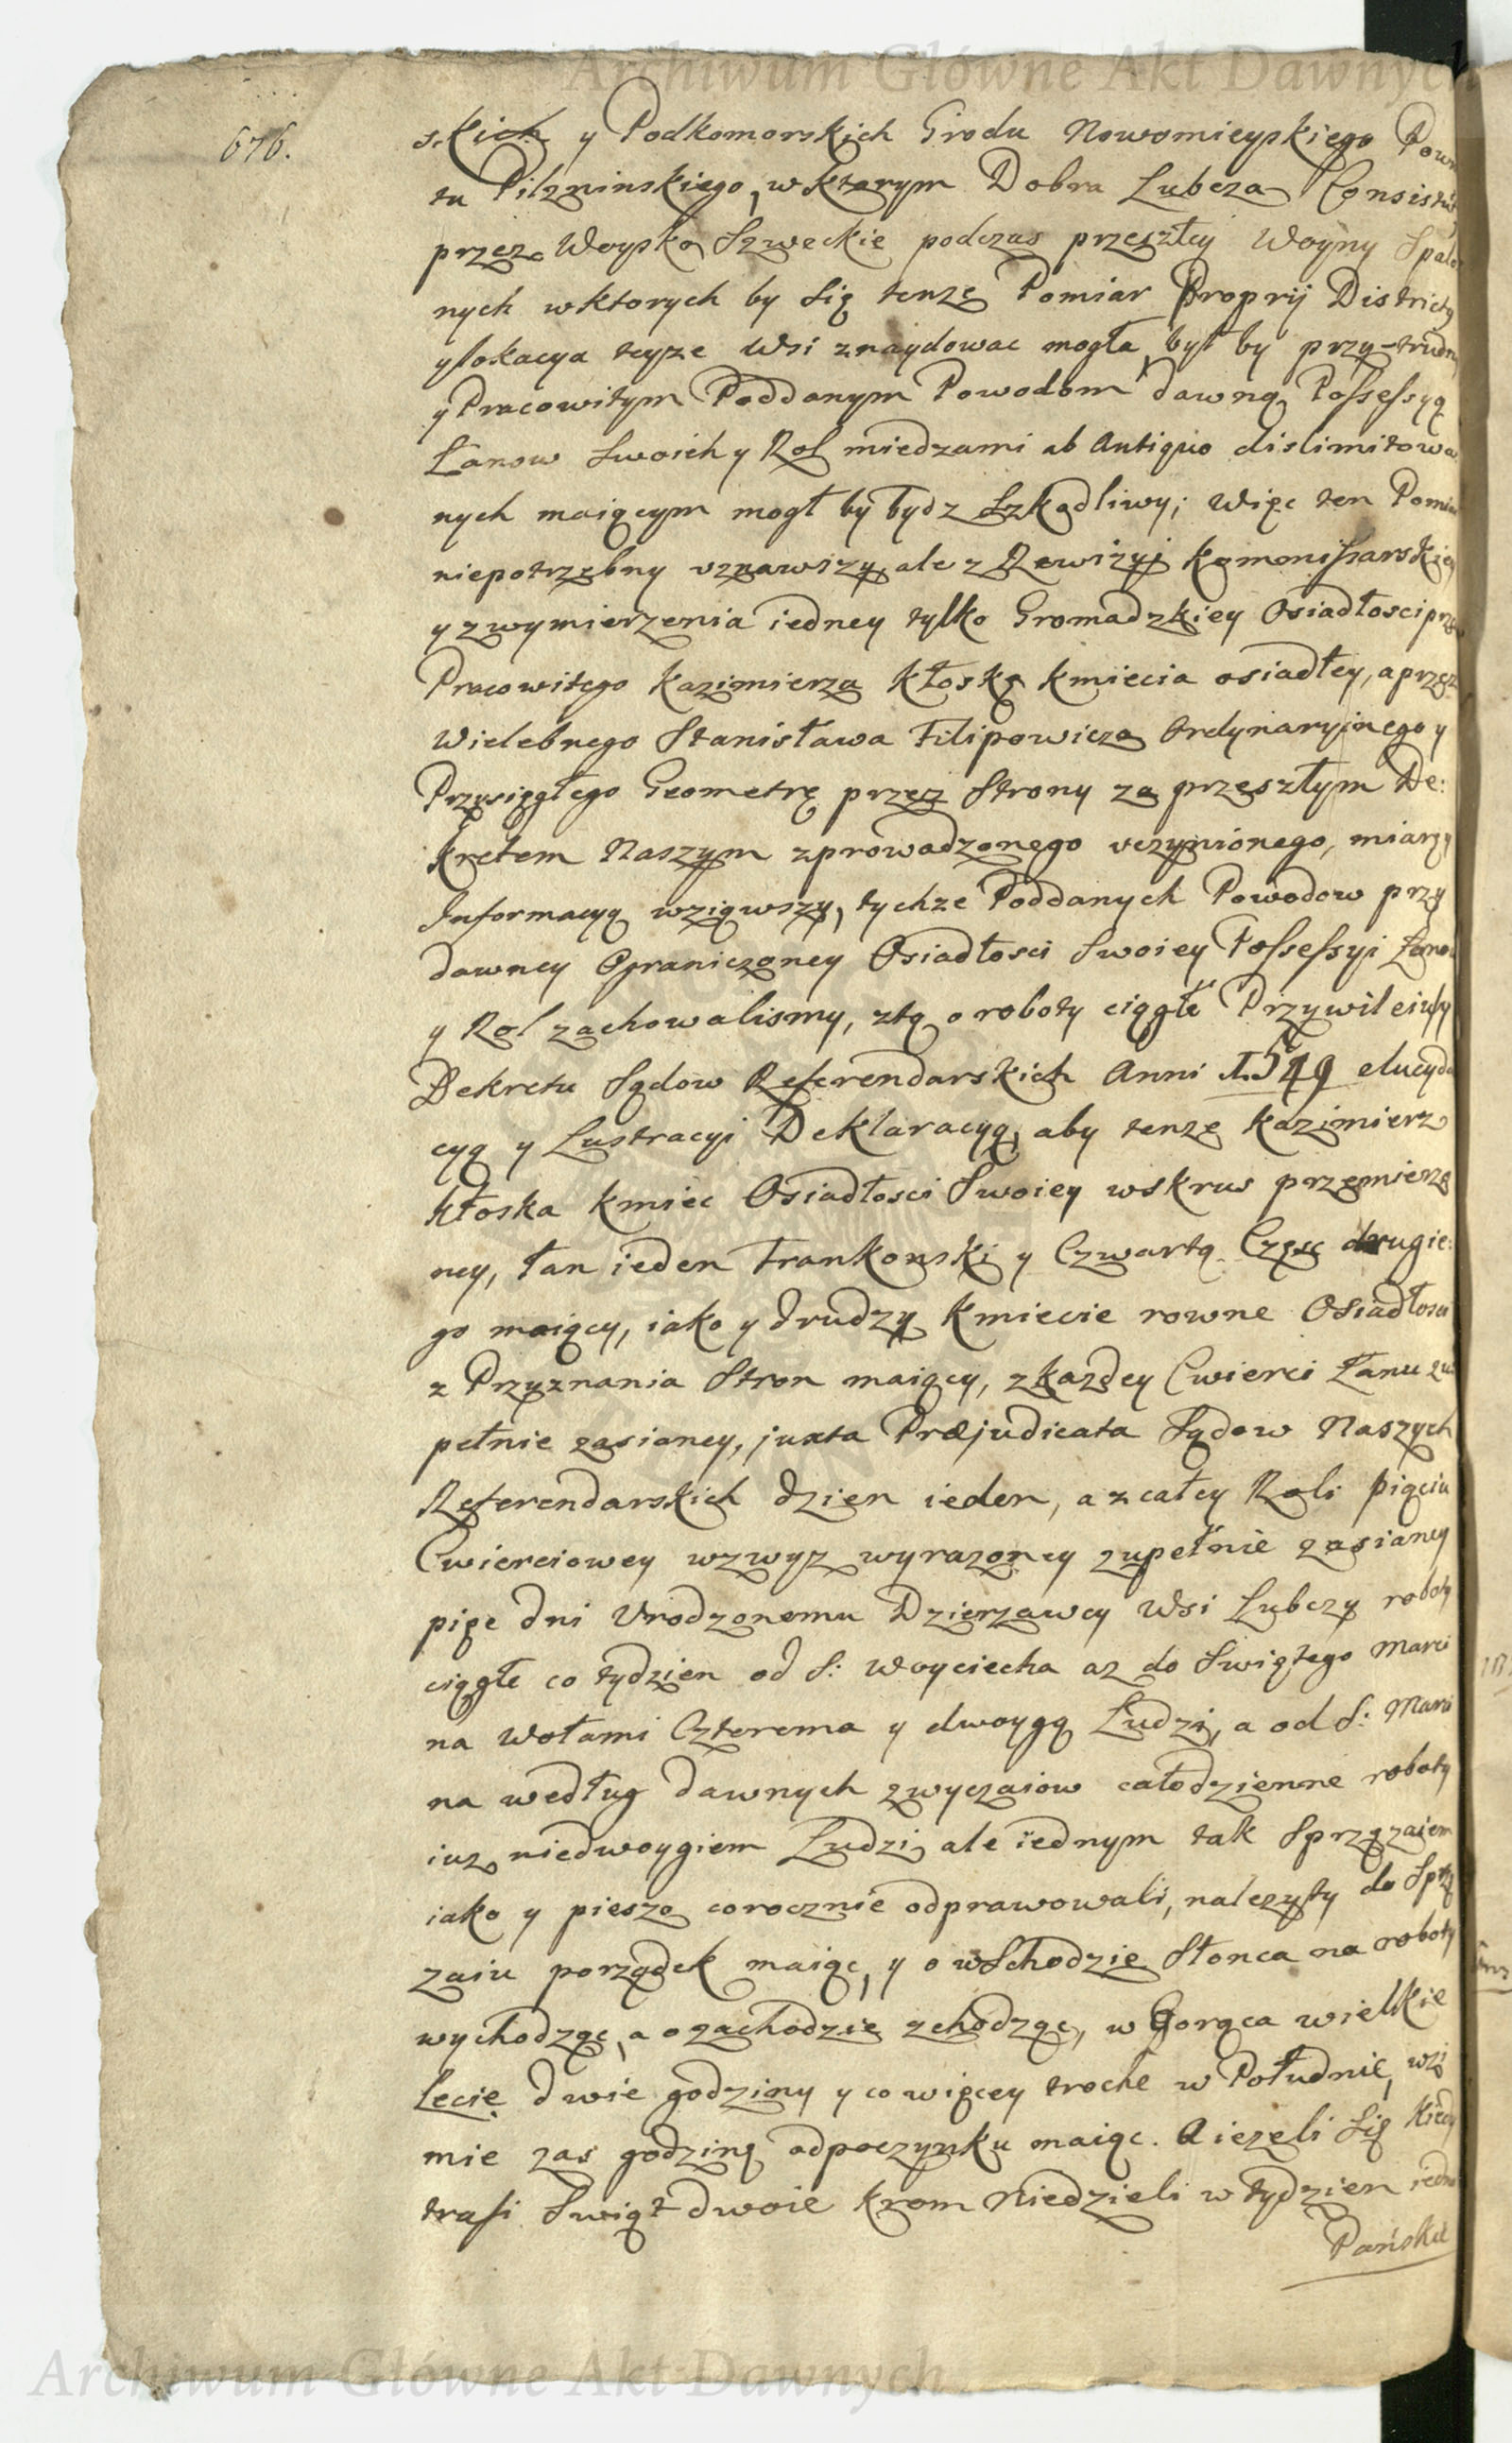 Archiwum Główne Akt Dawnych
676.
skich y Podkomorskich Grodu Nowomieyskiego Pow
tu Pilzninskiego, w ktorym Dobra Lubcza Consistu
przez Woysko Szweckie podczas przeszłey Woyny Spalo
nych wktorych by się tenze Pomiar Proprij Districtu
ylokacya teyze Wsi znaydowac mogła, był by przy-trudny
y Pracowitym Poddanym Powodom dawną Possessyą
Łanow Swoich y Rol miedzami ab Antiquo dislimitowa
nych maiącym mogł by bydz Szkodliwy; Więc ten Pomia
niepotrzebny uznawszy, ale z Rewizyi Kommonissarskiey
y zwymierzenia iedney tylko Gromadzkiey Osiadłosci prze
Pracowitego Kazimierza Kłoskę Kmiecia osiadłey, a przez
Wielebnego Stanisława Filipowicza Ordynaryinego y
Przysięgłego Geometrę przez Strony za przeszłym De:
kretem Naszym zprowadzonego uczynionego, miary
Informacyą wziąwszy, tychze Poddanych Powodow przy
dawney Ograniczoney Osiadłosci Swoiey Possessyi Łanow
y Rol zachowalismy, ztą o roboty ciągłe Przywileiu y
Dekretu Sądow Referendarskich Anni 1549 elucyda
cyą y Lustracyi Deklaracyą, aby tenze Kazimierz
Kłoska Kmiec Osiadłosci Swoiey wskrus przemierzo
ney, łan ieden Frankonski y Czwartą Częsc drugie:
go maiący, iako y drudzy Kmiecie rowne Osiadłosci
z Przyznania Stron maiący, z kazdey Cwierci Łanu zu
pełnie zasianey, juxta Præjudicata Sądow Naszych
Referendarskich dzien ieden, a z całey Roli pięciu
Cwierciowey wzwyz wyrazoney zupełnie zasianey
pięc dni Urodzonemu Dzierzawcy Wsi Lubczy roboty
ciągłe co tydzien od S: Woyciecha az do Swiętego Marci
na Wołami Czterema y dwoygą Ludzi, a od S: Marci
na według dawnych zwyczaiow całodzienne roboty
iuz niedwoygiem Ludzi, ale iednym tak Sprzęzaiem
iako y pieszo corocznie odprawowali, nalezyty do Sprzę
zaiu porządek maiąc, y o wschodzie Słonca na roboty
wychodząc, a o zachodzie zchodząc, w Gorąca wielkie
Lecie dwie godziny y co więcey troche w Południe, wzi
mie zas godzinę odpoczynku maiąc. A iezeli Się kiedy
trafi Swiąt dwoie krom Niedzieli w tydzien iedno
Pańskie
Archiwum Główne Akt Dawnych